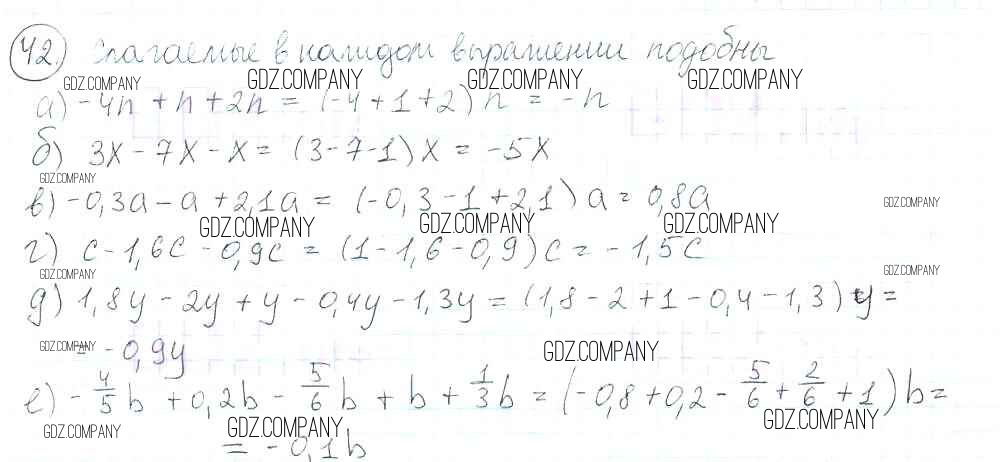 42. Слагаемые в каждом выражении подобны
GDZ.COMPANY GDZ.COMPANY GDZ.COMPANY GDZ.COMPANY
а) -4n + n + 2n = (-4 + 1 + 2) n = -n
б) 3x - 7x - x = (3-7-1) x = -5x
GDZ.COMPANY
в) -0,3a - a + 2,1a = (-0,3 -1 +2,1) a = 0,8a
GDZ.COMPANY GDZ.COMPANY GDZ.COMPANY GDZ.COMPANY
г) c - 1,6c - 0,9c = (1 - 1,6 - 0,9) c = -1,5c
GDZ.COMPANY GDZ.COMPANY
д) 1,8y - 2y + y - 0,4y - 1,3y = (1,8 - 2 + 1 - 0,4 - 1,3) y =
= -0,9y
GDZ.COMPANY GDZ.COMPANY
е) - 4/5 b + 0,2b - 5/6 b + b + 1/3 b = (-0,8 + 0,2 - 5/6 + 2/6 + 1) b =
GDZ.COMPANY GDZ.COMPANY GDZ.COMPANY
= -0,1b